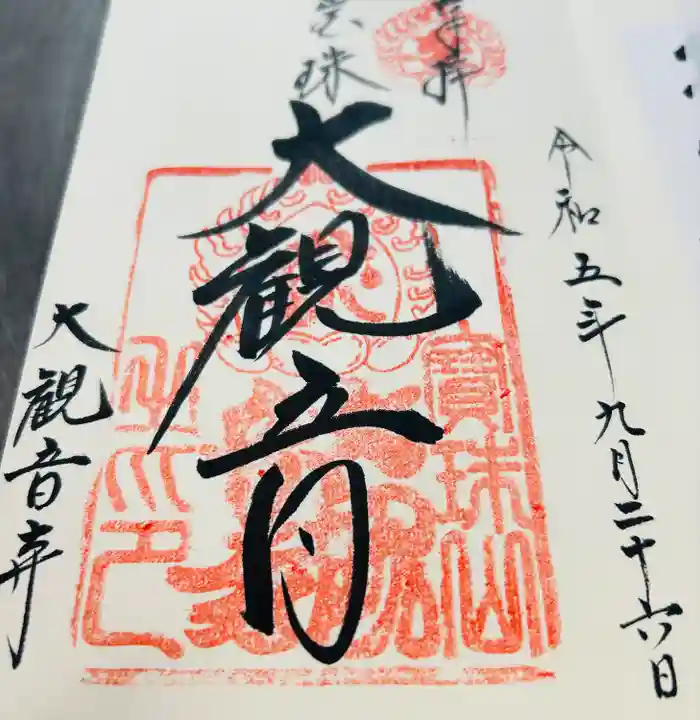 奉拝
令和五年九月二十六日
宝珠
大観音
寳珠山
大観音寺